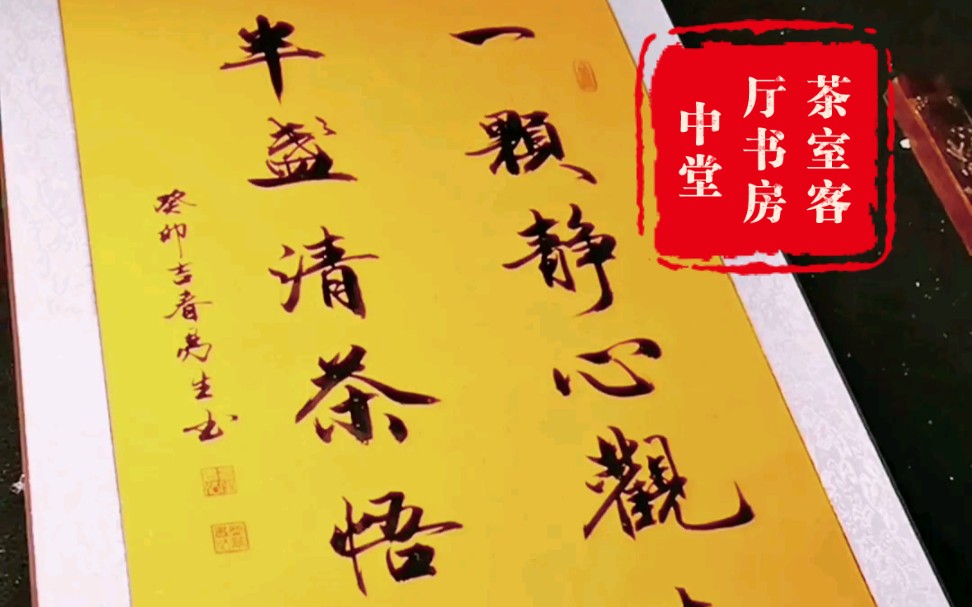 一顆静心觀
半盏清茶悟
癸卯吉春
生书
茶室客
厅书房
中堂